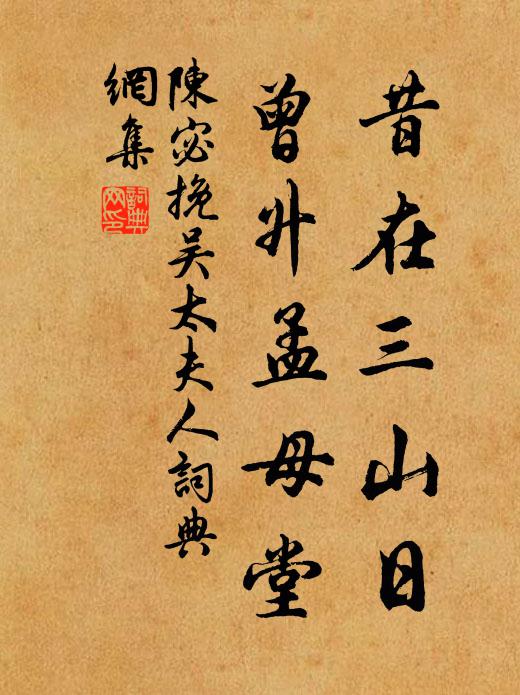 昔在三山日
曾升孟母堂
陳宓挽吴太夫人詞典
網集
詞典
网印